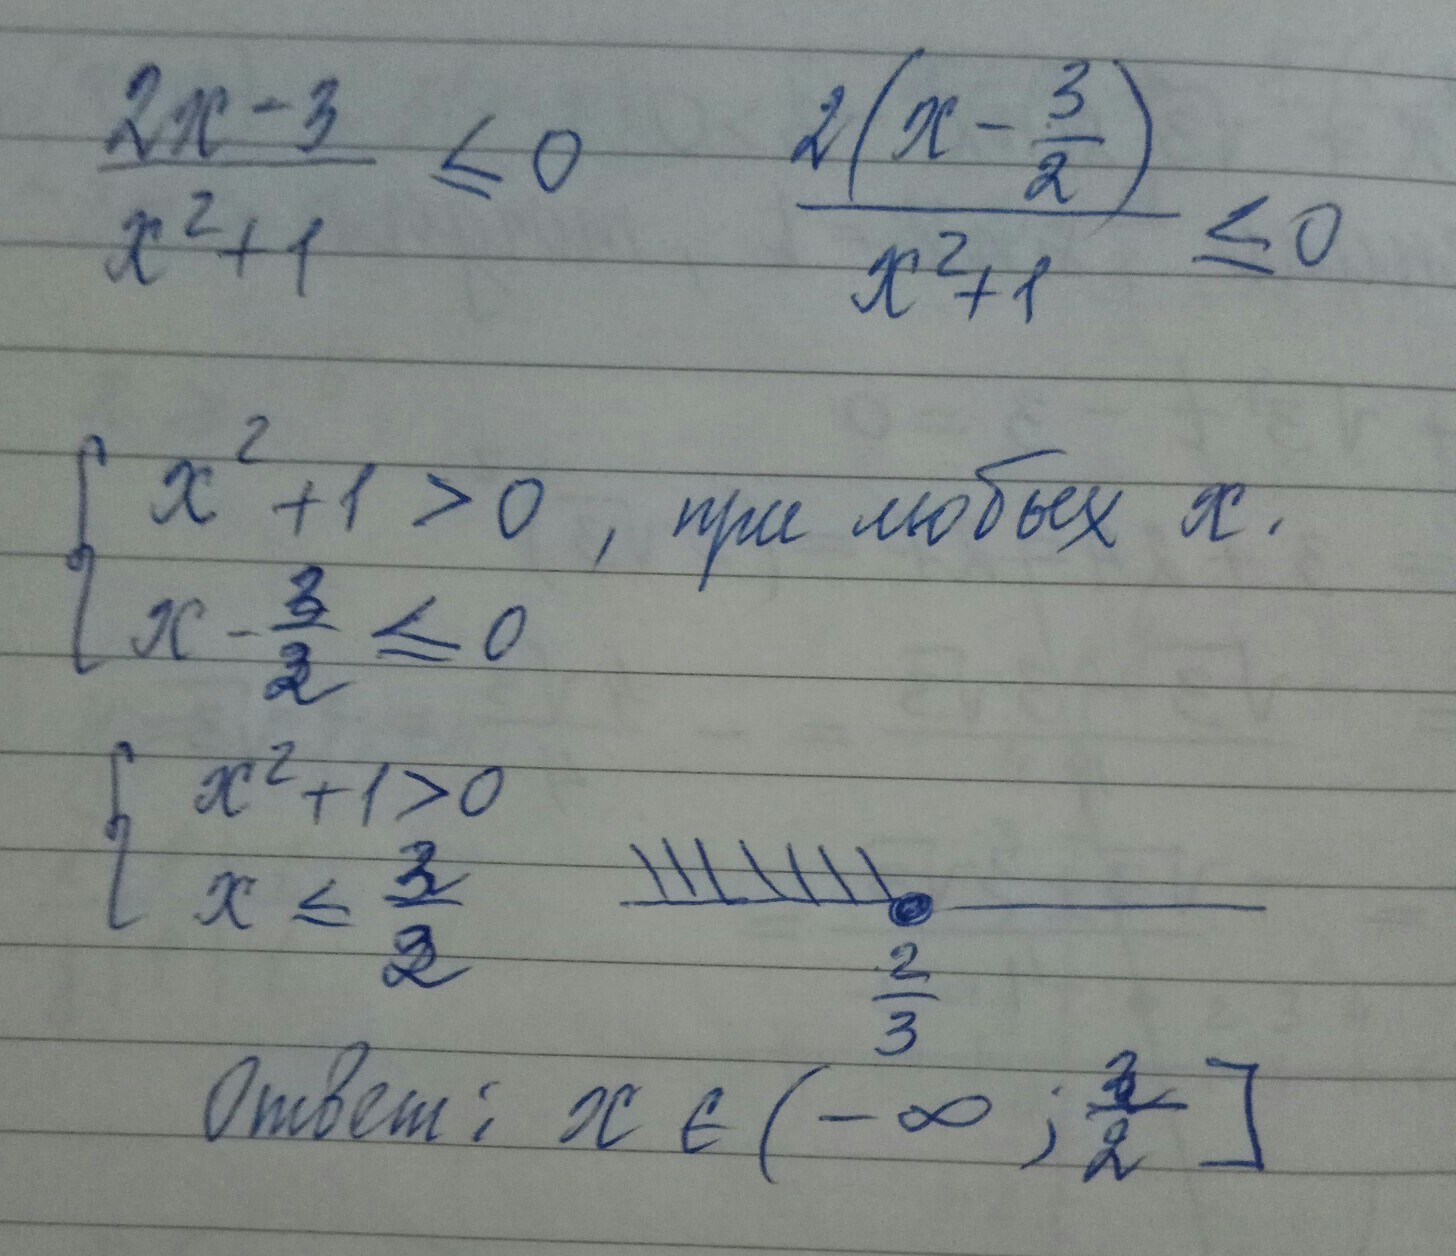 (2x - 3)/(x² + 1) ≤ 0    2(x - 3/2)/(x² + 1) ≤ 0
{ x² + 1 > 0, при любых x.
x - 3/2 ≤ 0
{ x² + 1 > 0
x ≤ 3/2
2/3
Ответ: x ∈ (-∞; 3/2]